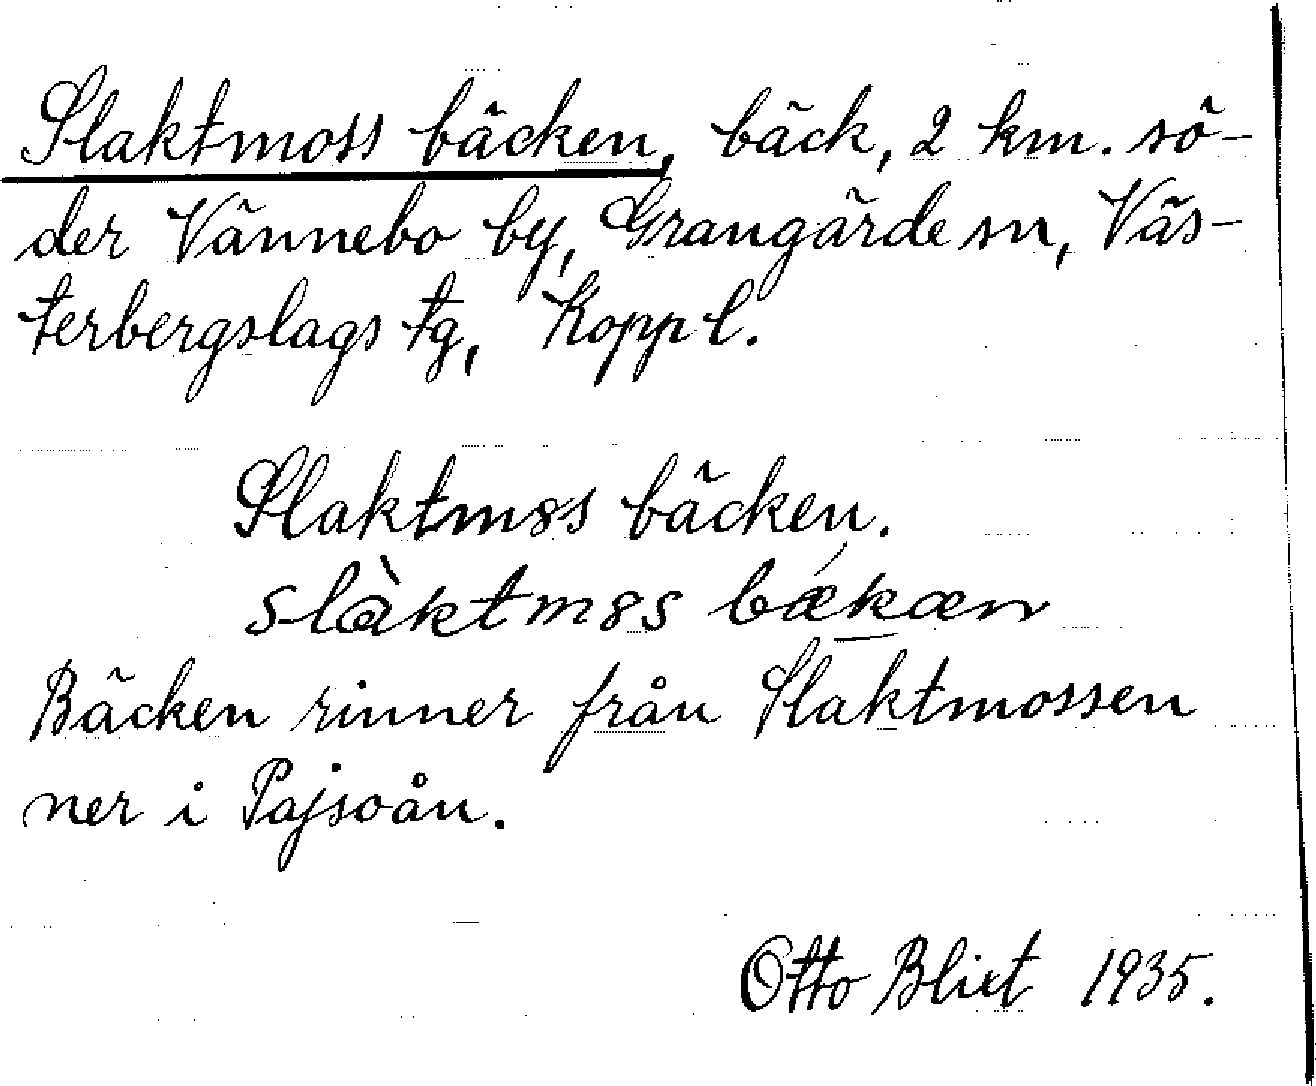 Slaktmoss bäcken, bäck, 2 km. sö-
der Vännebo by, Grangärde sn, Väs-
terbergslags tg, Kopp l.
Slaktm8s bäcken.
slàktm8s bækæn
Bäcken rinner från Slaktmossen
ner i Pajsoån.
Otto Blixt 1935.